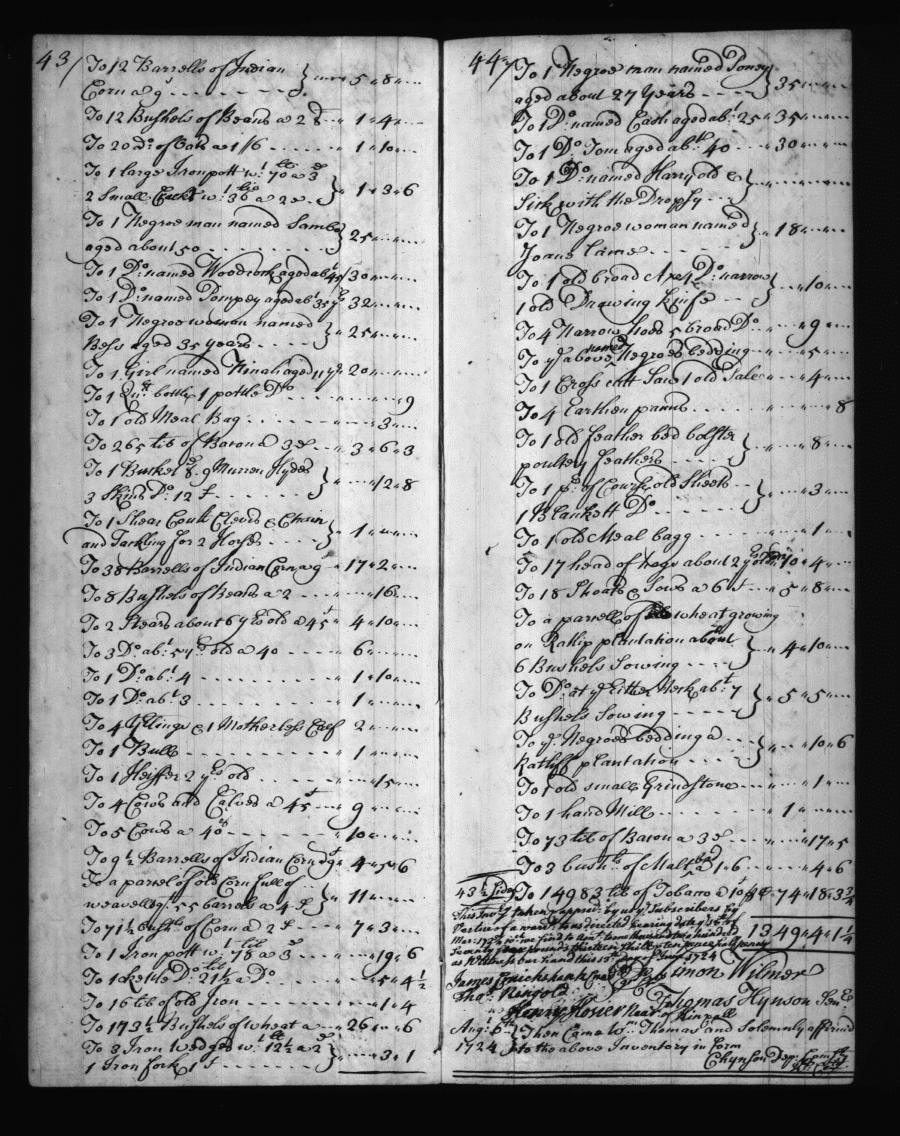 43/
To 12 Barrells of Indian
Corn a 9 5 " 8 "
To 12 Bushels of Beans a 2 1 " 4 "
To 20 Do. of Oats a 1/6 1 " 10 "
To 1 large Iron pott wt. 70 lib a 3d
2 small wt. 36 a 2 1 " 3 " 6
To 1 Negroe man named Sambo
aged about 50 25 "
To 1 Do. named Woodcock aged abt 40 30 "
To 1 Do. named Pompey aged abt 35 yrs 32 "
To 1 Negroe woman named
Bess aged 35 years 25 "
To 1 Girl named Hinah aged 11 yrs 20 "
To 1 Qut. bottle 1 pottle Do " 9
To 1 old Meal Bag " 3 "
To 265 lib of Bacon a 3d 3 " 6 " 3
To 1 8d. 9 Murren Hydes
3 Skins Do. 12 " 12 " 8
To 1 Shear Coult Clevis & Chain
and Tackling for 2 Horses 1 "
To 38 Barrells of Indian Corn a 9 17 " 2 "
To 8 Bushels of Beans a 2 " 16 "
To 2 Stears about 6 yrs old a 45s 4 " 10 "
To 3 Do. abt. 5 yrs. old a 40 6 "
To 1 Do. abt. 4 1 " 10 "
To 1 Do. abt 3 1 "
To 4 & 1 Motherless Calf 2 "
To 1 Bull 1 "
To 1 Heiffer 2 yrs old " 15 "
To 4 Cows and Calves a 45s 9 "
To 5 Cows a 40s 10 "
To 9½ Barrells of Indian Corn a 9s 4 " 5 " 6
To a parcel of old Corn full of
weavells qt. 55 barrells a 4s 11 "
To 71½ bushls. of Corn a 2s 7 " 3 "
To 1 Iron pott wt. 78 lib a 3d " 19 " 6
To 1 kettle Do. 21½ lib a Do " 5 " 4½
To 16 lib of old Iron " 1 " 4
To 173½ Bushels of wheat a 26 " 6
To 3 Iron Wedges wt. 12½ lib a 2d
1 Iron fork 1s " 3 " 1
44/
To 1 Negroe man named Toney
aged about 27 Years 35 "
To 1 Do. named aged abt. 25 35 "
To 1 Do Tom aged abt. 40 30 "
To 1 Do. named Harry old &
Sick with the Dropsy "
To 1 Negroe woman named
Joane lame 18 "
To 1 old broad Axe 4 Do. narrow
1 old Drawing knife " 10 "
To 4 Narrow Hoes 5 broad Do " 9 "
To ye above named Negroes bedding " 5 "
To 1 Cross cutt Saw 1 old " 4 "
To 4 Earthen panns " 8
To 1 old feather bed bolster
poultery feathers " 8 "
To 1 pr. of Course old Sheets
1 Blankett Do " 3 "
To 1 old Meal bagg " 1 "
To 17 head of hogs about 2 yrs old 10 " 4 "
To 18 Shoats & Sows a 6s 5 " 8 "
To a parcell of wheat growing
on plantation about
6 Bushels Sowing 4 " 10 "
To Do. at ye Neck abt. 7
Bushels Sowing 5 " 5 "
To ye. Negroes bedding a
Ratliff plantation " 10 " 6
To 1 old small Grindstone " 1 "
To 1 hand Mill 1 "
To 73 lib of Bacon a 3d " 17 " 5
To 3 bushls. of Malt a 1 " 6 " 4 " 6
43½ Sides To 14983 lib of Tobacco a 10s 74 " 18 " 3¾
This Invy. taken & apprd. by us ye. Subscribers by
Vertue of a warrt. to us directed bearing date ye 5th day
1349 " 4 " 1¼
as Witness our hands this day of 1724
James Simon Wilmer
Thos. Ringold
Henry Thomas Hynson Sen
near of Kin
Augt. 6th
1724 Then Came Wm. Thomas and Solemnly affirmed
to the above Inventory in form
C Hynson Depy. Comsry